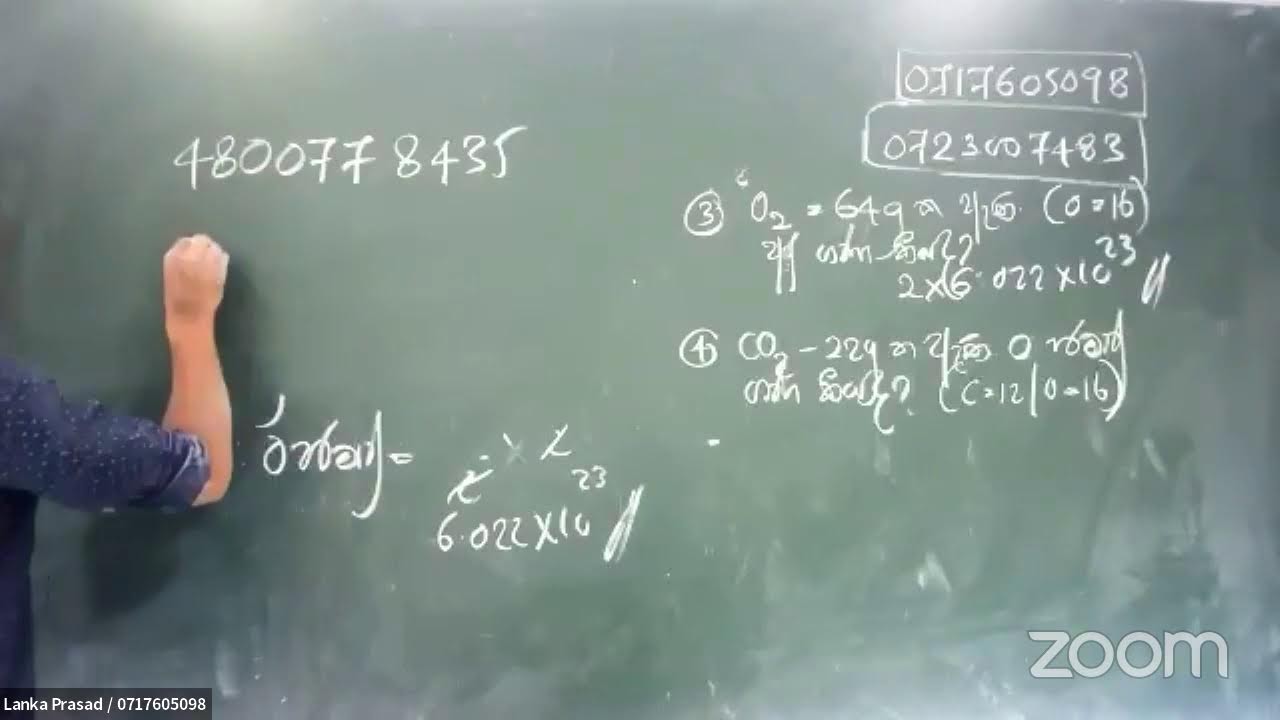 0717605098
0723007483
4800778435
③ O₂ = 64g ක ඇති (O = 16)
ගණන කීයද?
2×6.022×10²³
④ CO₂ - 22g ක ඇති O පරමාණු
ගණන කීයද? (C=12/O=16)
O පරමාණු =
6.022×10²³
zoom
Lanka Prasad / 0717605098